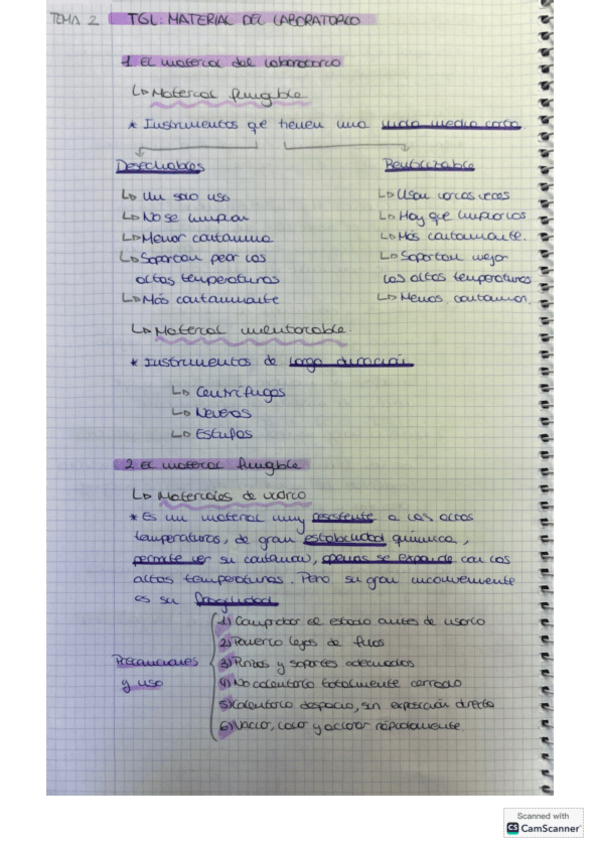 TEMA 2 TGL: MATERIAL DEL LABORATORIO
1 El material del laboratorio
↳ Material fungible
* Instrumentos que tienen una vida media corta
Desechables
↳ Un solo uso
↳ No se limpian
↳ Menor contamina
↳ Soportan peor las
altas temperaturas
↳ Más contaminante
Reutilizable
↳ Usan varias veces
↳ Hay que limpiarlos
↳ Más contaminante.
↳ Soportan mejor
las altas temperaturas
↳ Menos contamon.
↳ Material inventariable.
* Instrumentos de larga duración
↳ Centrífugas
↳ Neveras
↳ Estufas
2 El material fungible
↳ Materiales de vidrio
* Es un material muy resistente a las altas
temperaturas, de gran estabilidad química,
permite ver su contenido, apenas se expande con las
altas temperaturas. Pero su gran inconveniente
es su fragilidad
Precauciones
y uso
1) Comprobar el estado antes de usarlo
2) Ponerlo lejos de filos
3) Pinzas y soportes adecuados
4) No calentarlo totalmente cerrado
5) Calentarlo despacio, sin exposición directa
6) Vaciar, lavar y aclarar rápidamente.
Scanned with
CS CamScanner